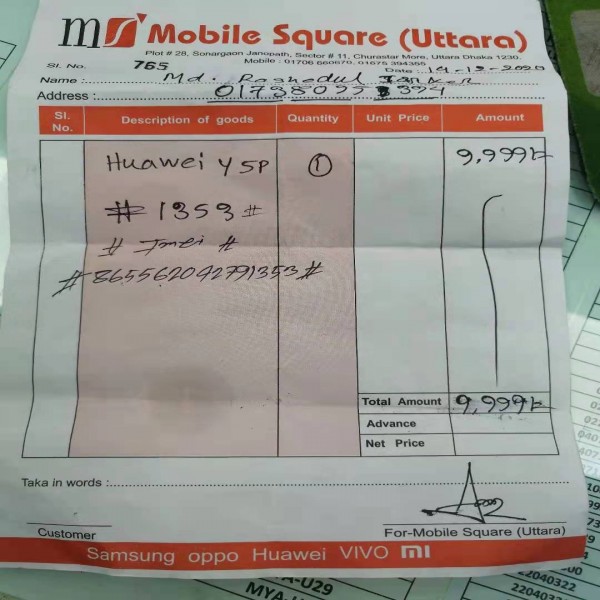 ms Mobile Square (Uttara)
Plot # 28, Sonargaon Janopath, Sector # 11, Churastar More, Uttara Dhaka 1230.
Mobile : 01706 660670, 01675 394385
Sl. No. 765 Date : 14-12-2020
Name : Md. Rashedul
Address :
Sl. No. Description of goods Quantity Unit Price Amount
Huawei Y5P 1 9,999/-
# 1353 #
# Imei #
# 865562042791353 #
Total Amount 9,999/-
Advance
Net Price
Taka in words :
Customer For-Mobile Square (Uttara)
Samsung oppo Huawei VIVO mi
22040322
22040322